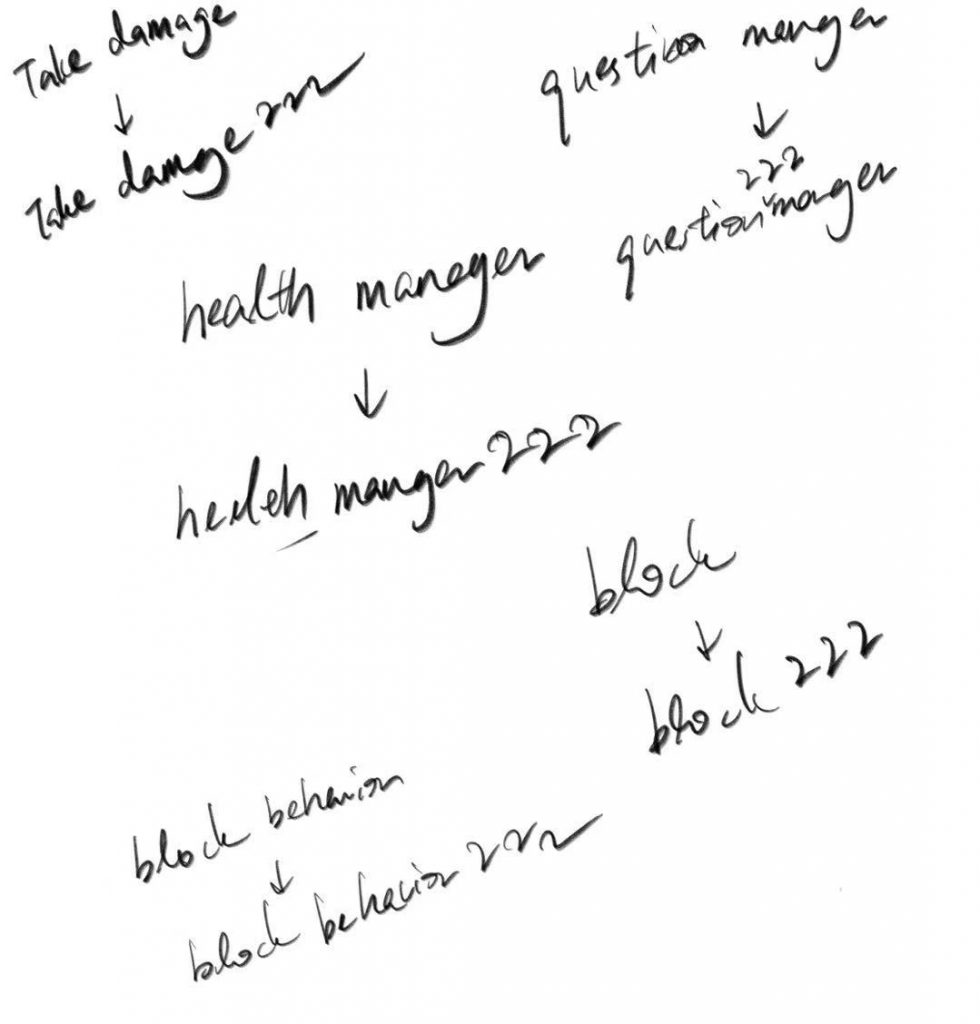 Take damage
↓
Take damage 222
question manger
↓
222
question manger
health manager
↓
health manger 222
block
↓
block 222
block behavior
↓
block behavior 222